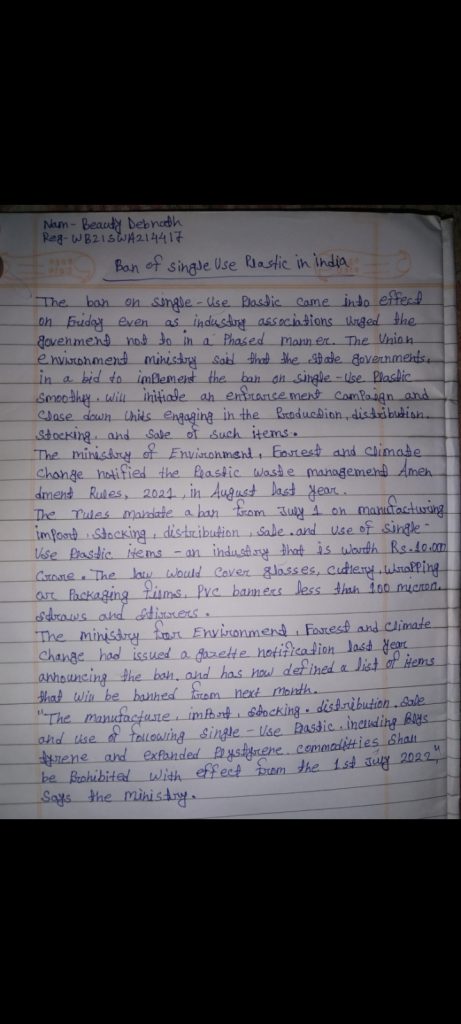 Nam - Beauty Debnath
Reg- WB21SWA214417
Ban of single Use Plastic in india
The ban on single-use Plastic came into effect
on Friday even as industry associations urged the
govenment not to in a Phased manner. The Union
environment ministry said that the state governments,
in a bid to implement the ban on single-use Plastic
smoothly, will initiate an enforcement campaign and
close down units engaging in the Production, distribution,
stocking, and sale of such items.
The ministry of Environment, Forest and climate
change notified the Plastic waste management Amen
dment Rules, 2021, in August last year.
The rules mandate a ban from July 1 on manufacturing
import, stocking, distribution, sale, and use of single-
use Plastic items - an industry that is worth Rs. 10,000
crore. The law would cover glasses, cutlery, wrapping
or Packaging films, PVC banners less than 100 micron,
straws and stirrers.
The ministry for Environment, Forest and climate
change had issued a gazette notification last year
announcing the ban, and has now defined a list of items
that will be banned from next month.
"The manufacture, import, stocking, distribution, sale
and use of following single-use Plastic, including Polys
tyrene and expanded Polystyrene commodities, shall
be Prohibited with effect from the 1st July 2022,"
says the ministry.